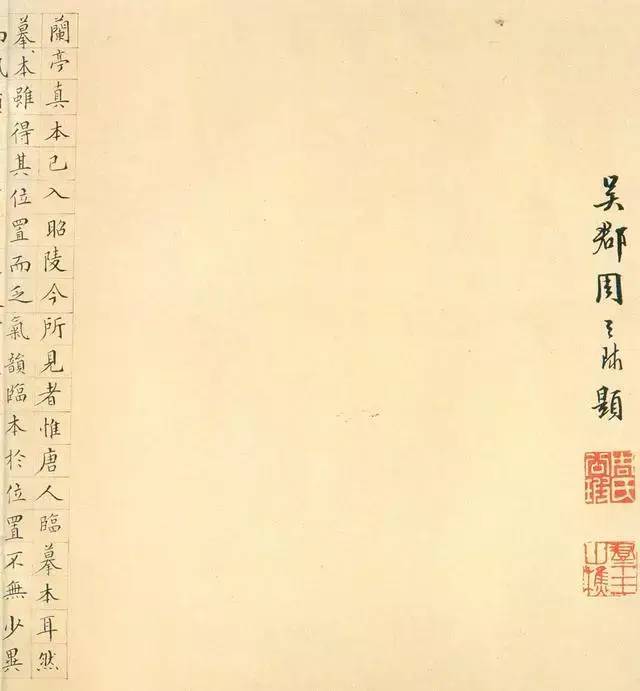 吳郡周天球題
周氏公瑕
羣玉山樵
蘭亭真本已入昭陵今所見者惟唐人臨摹本耳然
摹本雖得其位置而乏氣韻臨本於位置不無少異